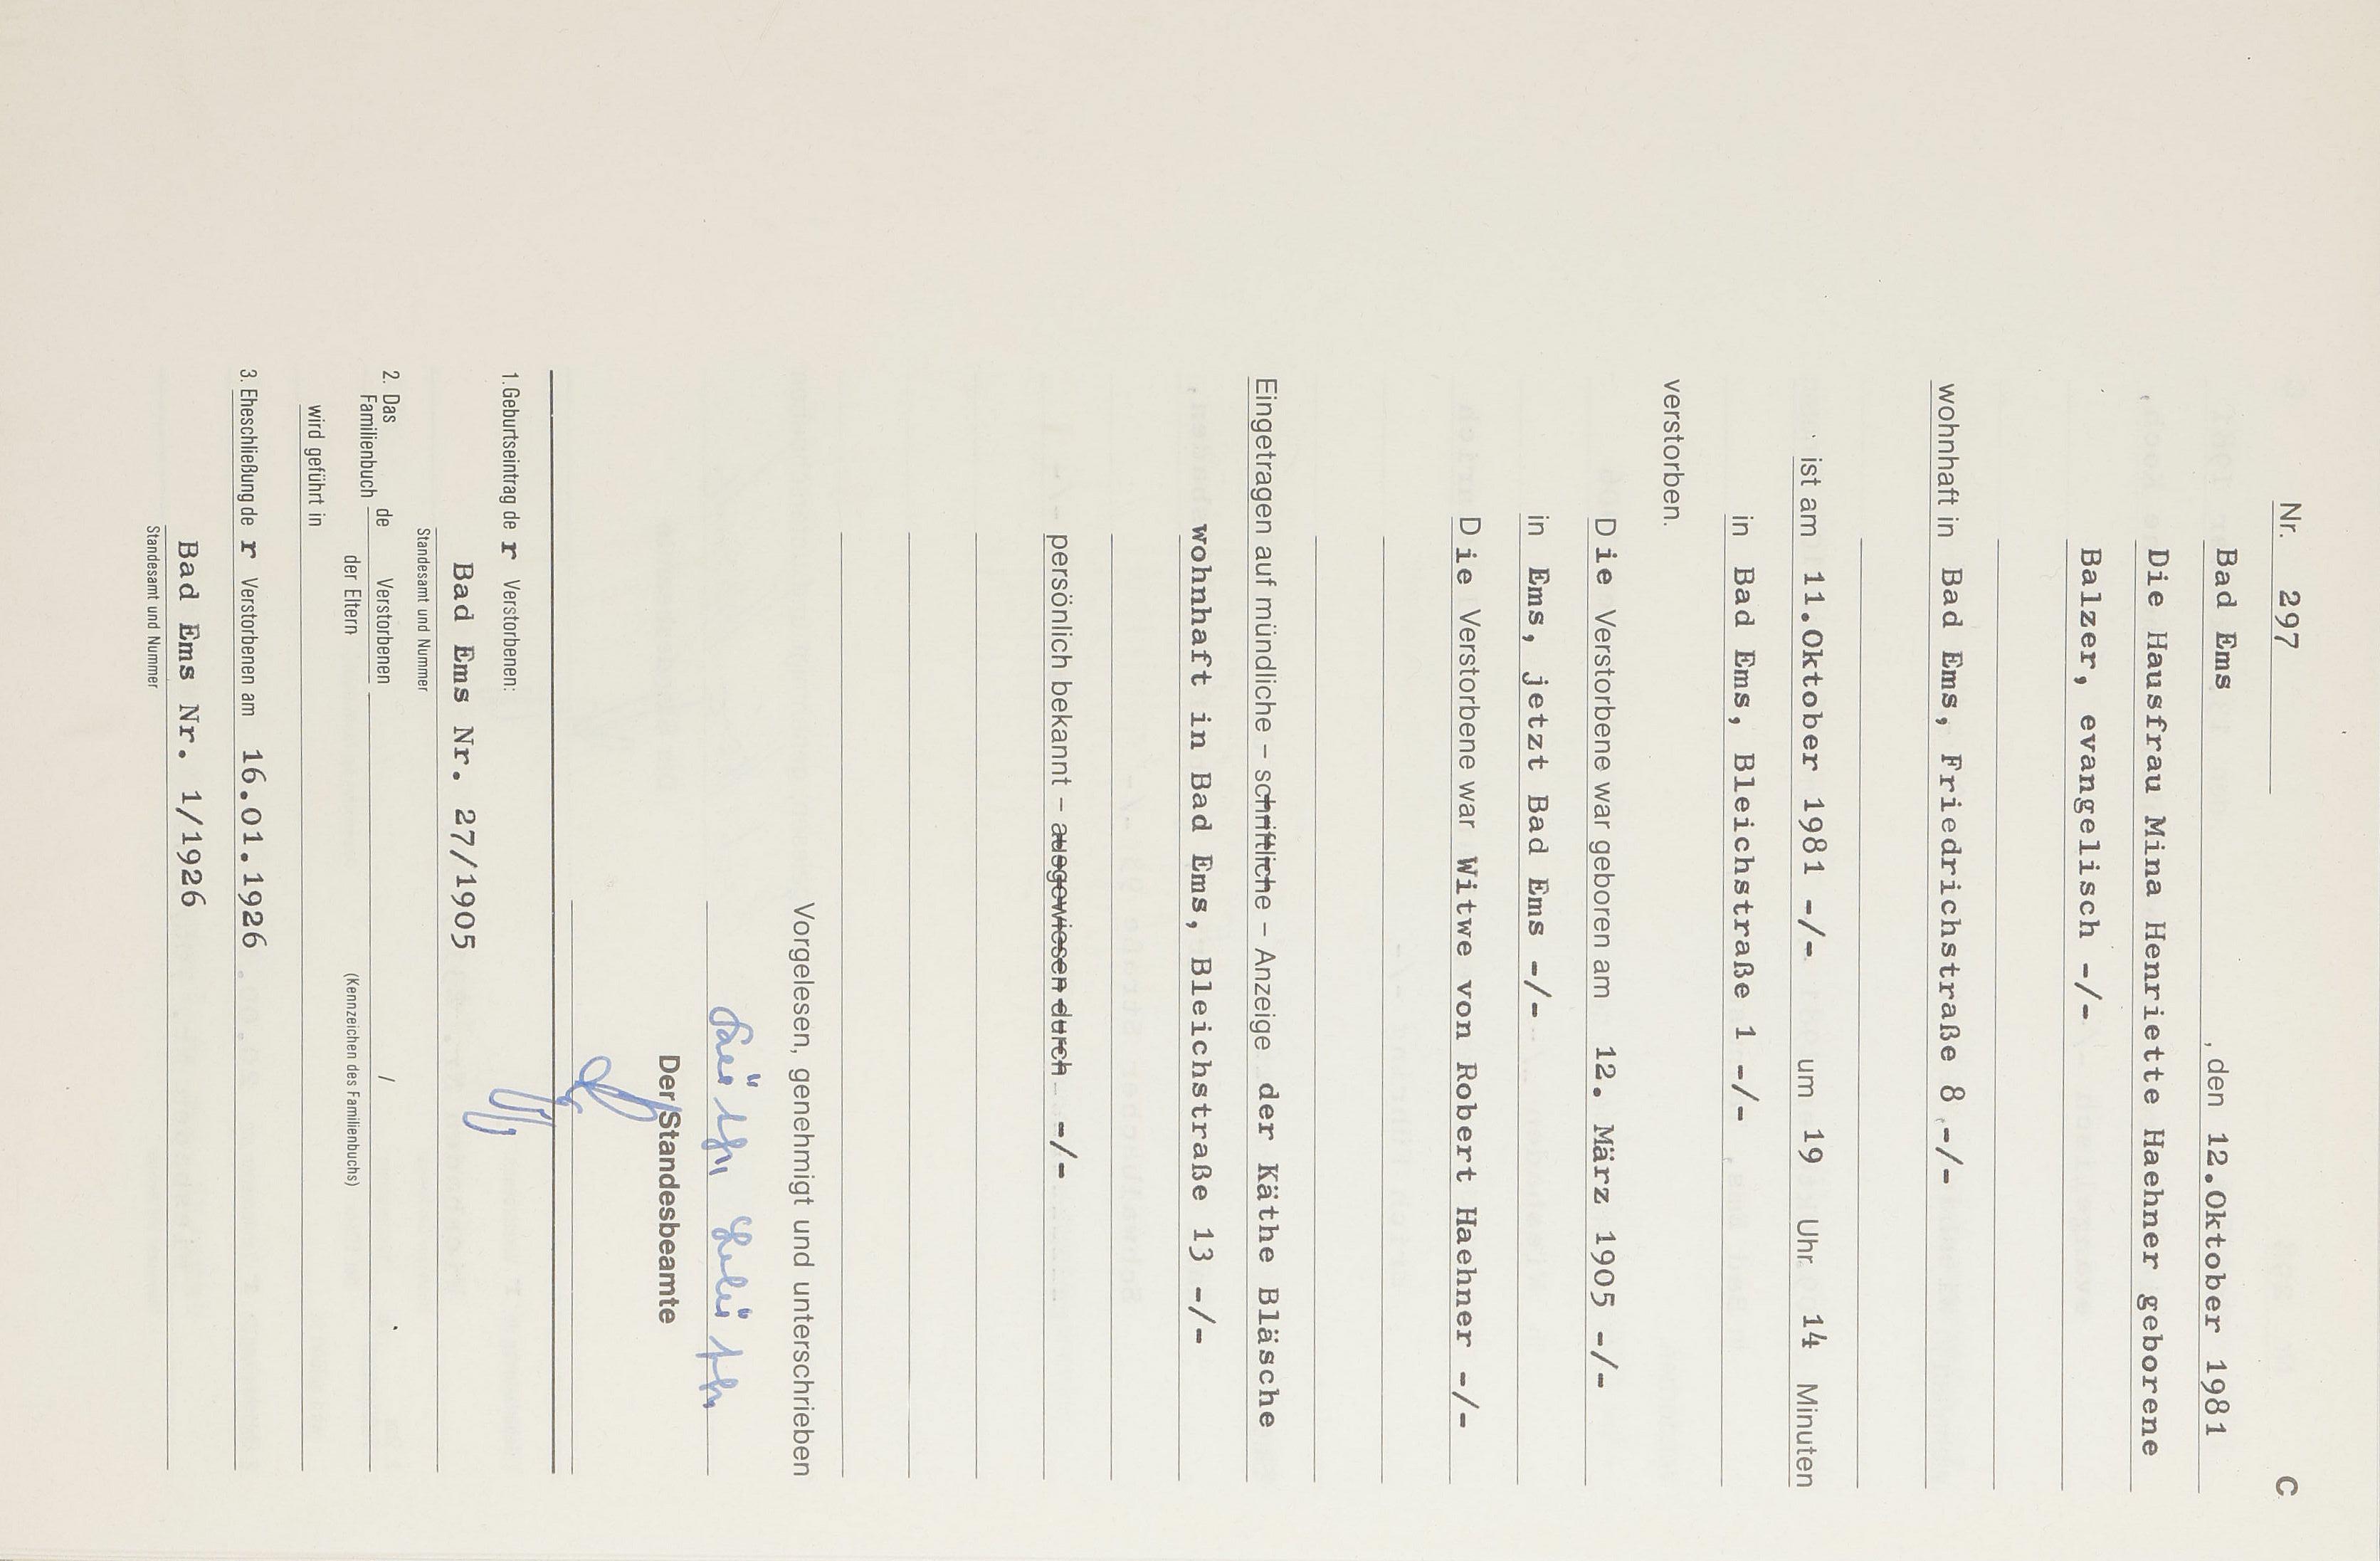 Nr. 297
C
Bad Ems , den 12.Oktober 1981
Die Hausfrau Mina Henriette Haehner geborene
Balzer, evangelisch -/-
wohnhaft in Bad Ems, Friedrichstraße 8 -/-
ist am 11.Oktober 1981 -/- um 19 Uhr 14 Minuten
in Bad Ems, Bleichstraße 1 -/-
verstorben.
Die Verstorbene war geboren am 12. März 1905 -/-
in Ems, jetzt Bad Ems -/-
Die Verstorbene war Witwe von Robert Haehner -/-
Eingetragen auf mündliche – schriftliche – Anzeige der Käthe Bläsche
wohnhaft in Bad Ems, Bleichstraße 13 -/-
persönlich bekannt – ausgewiesen durch -/-
Vorgelesen, genehmigt und unterschrieben
Der Standesbeamte
1. Geburtseintrag de r Verstorbenen:
Bad Ems Nr. 27/1905
Standesamt und Nummer
2. Das Familienbuch de Verstorbenen /
der Eltern (Kennzeichen des Familienbuchs)
wird geführt in
3. Eheschließung de r Verstorbenen am 16.01.1926
Bad Ems Nr. 1/1926
Standesamt und Nummer